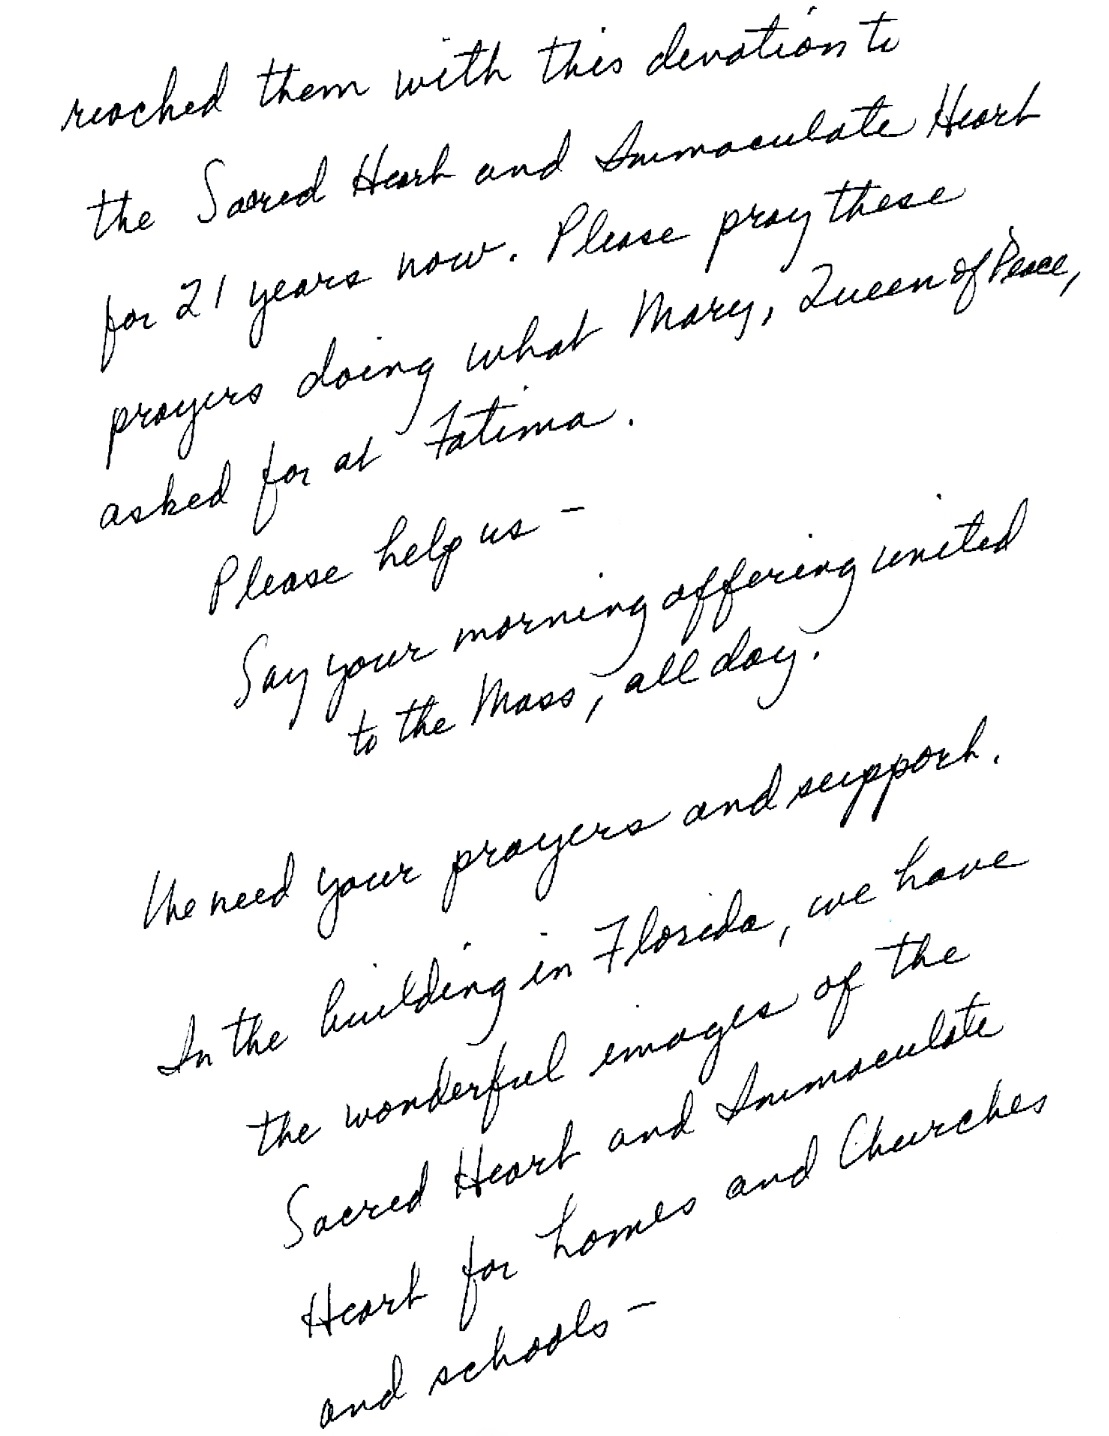 reached them with this devotion to
the Sacred Heart and Immaculate Heart
for 21 years now. Please pray these
prayers doing what Mary, Queen of Peace,
asked for at Fatima.
Please help us -
Say your morning offering united
to the Mass, all day.
We need your prayers and support.
In the building in Florida, we have
the wonderful images of the
Sacred Heart and Immaculate
Heart for homes and Churches
and schools -